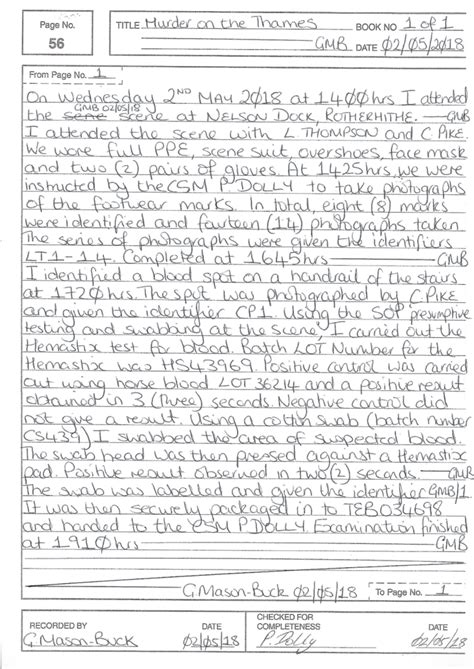 Page No. 56
TITLE Murder on the Thames BOOK NO 1 of 1
GMB DATE 02/05/2018
From Page No. 1
On Wednesday 2ND MAY 2018 at 1400hrs I attended
GMB 02/05/18
the sene scene at NELSON DOCK, ROTHERHITHE. GMB
I attended the scene with L. THOMPSON and C. PIKE.
We wore full PPE, scene suit, overshoes, face mask
and two (2) pairs of gloves. At 1425hrs, we were
instructed by the CSM P DOLLY to take photographs
of the footwear marks. In total, eight (8) marks
were identified and fourteen (14) photographs taken
The series of photographs were given the identifiers
LT1-14. Completed at 1645hrs GMB
I identified a blood spot on a handrail of the stairs
at 1720hrs. The spot was photographed by C. PIKE
and given the identifier CP1. Using the SOP presumptive
testing and swabbing at the scene, I carried out the
Hemastix test for blood. Batch LOT Number for the
Hemastix was HS43969. Positive control was carried
out using horse blood LOT 36214 and a positive result
obtained in 3 (three) seconds. Negative control did
not give a result. Using a cotton swab (batch number
CS439) I swabbed the area of suspected blood.
The swab head was then pressed against a Hemastix
pad. Positive result observed in two (2) seconds. GMB
The swab was labelled and given the identifier GMB/1
It was then securely packaged in to TEB034698
and handed to the CSM P DOLLY. Examination finished
at 1910hrs GMB
G Mason-Buck 02/05/18 To Page No. 1
RECORDED BY DATE CHECKED FOR COMPLETENESS DATE
G Mason-Buck 02/05/18 P. Dolly 02/05/18